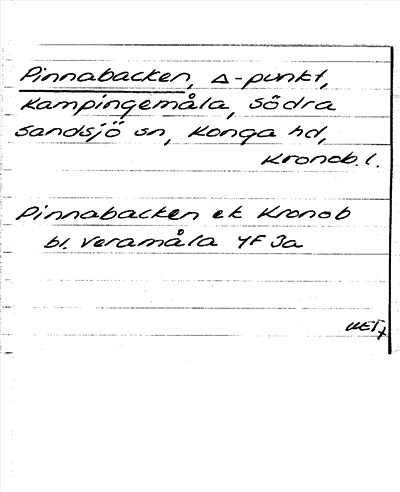 Pinnabacken, Δ-punkt,
Kampingemåla, Södra
Sandsjö sn, Konga hd,
Kronob. l.
Pinnabacken ek Kronob
bl. Veramåla 4F 3a